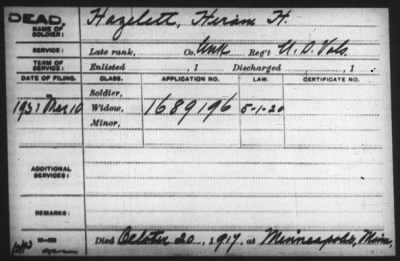 DEAD, Hazelett, Hiram H.
NAME OF SOLDIER:
SERVICE: Late rank, Co. Unk Reg't U.S. Vols.
TERM OF SERVICE: Enlisted , 1 Discharged , 1 .
DATE OF FILING. CLASS. APPLICATION NO. LAW. CERTIFICATE NO.
Soldier,
Mar 10 Widow, 1689196 5-1-20
Minor,
ADDITIONAL SERVICES:
REMARKS:
Died October 20, 1917, at Minneapolis, Minn.